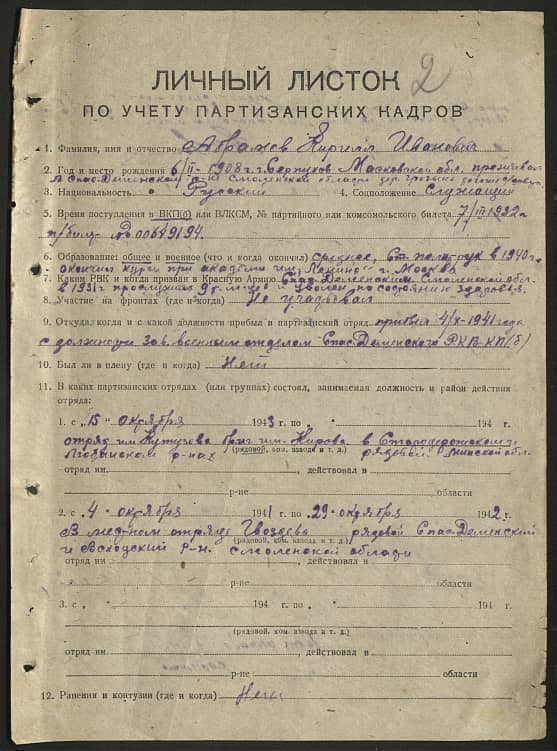 2
ЛИЧНЫЙ ЛИСТОК
ПО УЧЕТУ ПАРТИЗАНСКИХ КАДРОВ
1. Фамилия, имя и отчество Абрамов Кирилл Иванович
2. Год и место рождения 6/II-1908 г. г. Серпухов Московской обл. проживал
в Спас-Деменском р-не Смоленской области
3. Национальность Русский 4. Соцположение Служащий
5. Время поступления в ВКП(б) или ВЛКСМ, № партийного или комсомольского билета 7/III 1932 г.
п/билет № 00649194.
6. Образование: общее и военное (что и когда окончил) среднее, Ст. политрук в 1940 г.
окончил курсы при академии им. Ленина г. Москва
7. Каким РВК и когда призван в Красную Армию Спас-Деменским Смоленской обл.
в 1931 г прослужил 9 уволен по состоянию здоровья.
8. Участие на фронтах (где и когда) Не участвовал
9. Откуда, когда и с какой должности прибыл в партизанский отряд прибыл 4/X-1941 года
с должности зав. военным отделом Спас-Деменского РК ВКП(б)
10. Был ли в плену (где и когда) Нет
11. В каких партизанских отрядах (или группах) состоял, занимаемая должность и район действия
отряда:
1. с „15" октября 1943 г. по „ " 194 г.
отряд им. Кутузова бриг. им. Кирова в Стародорожском и
Любанском р-нах рядовой Минской обл.
(рядовой, ком. взвода и т. д.)
отряд им. , действовал в
р-не области
2. с „4" октября 1941 г. по „29" октября 1942 г.
В местном отряде Гвоздева рядовой Спас-Деменский
(рядовой, ком. взвода и т. д.)
и Всходский р-н. Смоленской области
отряд им. , действовал в
р-не области
3. с „ " 194 г. по „ " 194 г.
(рядовой, ком. взвода и т. д.)
отряд им. , действовал в
р-не области
12. Ранения и контузии (где и когда) Нет